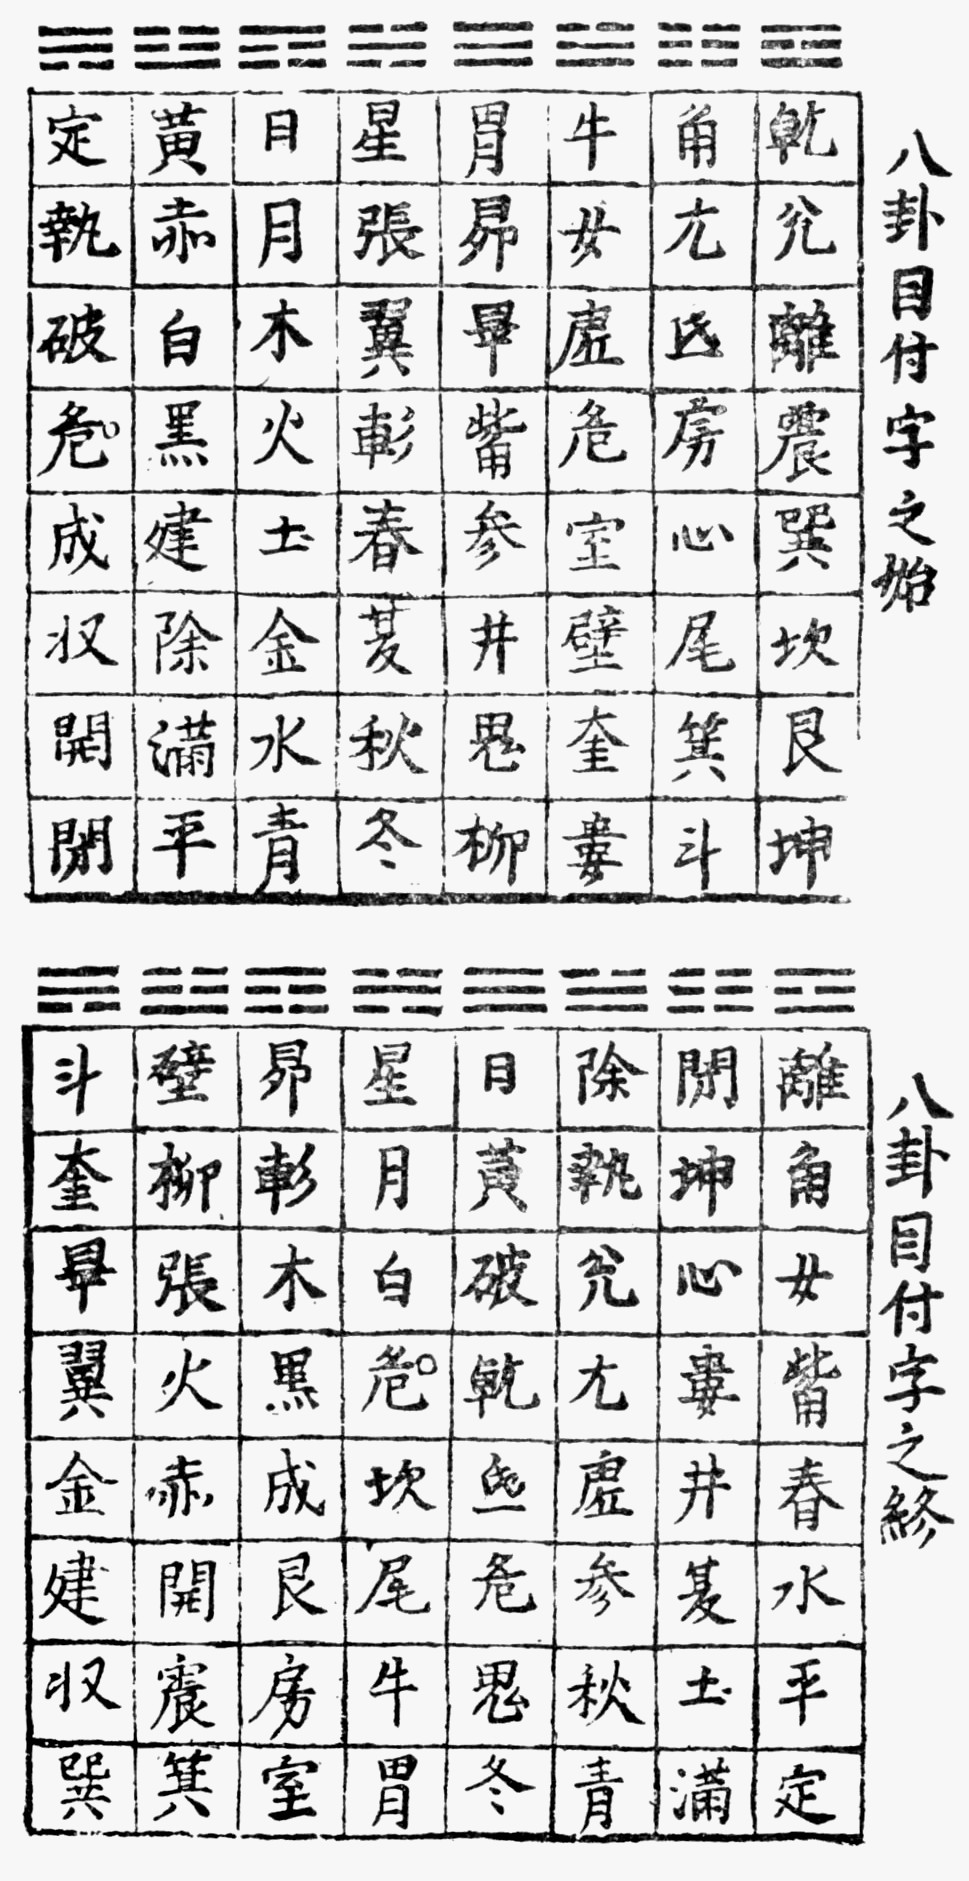 八卦目付字之始
乾兊離震巽坎艮坤
角亢氐房心尾箕斗
牛女虚危室壁奎婁
胃昴畢觜参井鬼柳
星張翼軫春夏秋冬
日月木火土金水青
黄赤白黒建除満平
定執破危成収開閉
八卦目付字之終
離角女觜春水平定
閉坤心婁井夏土満
除執兊亢虚参秋青
日黄破乾氐危鬼冬
星月白危坎尾牛胃
昴軫木黒成艮房室
壁柳張火赤開震箕
斗奎畢翼金建収巽